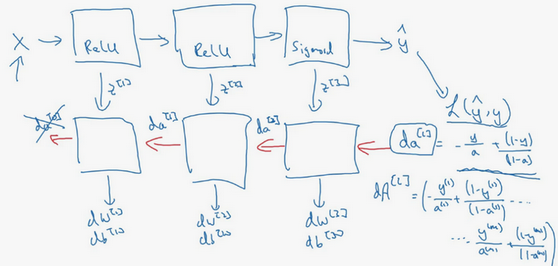 X → ReLU → ReLU → Sigmoid → ŷ
z^[1] z^[2] z^[3]
L(ŷ, y)
da^[0] da^[1] da^[2] da^[L] = -y/a + (1-y)/(1-a)
dw^[1] dw^[2] dw^[3]
db^[1] db^[2] db^[3]
dA^[L] = (-y^(1)/a^(1) + (1-y^(1))/(1-a^(1)) ....
... -y^(m)/a^(m) + (1-y^(m))/(1-a^(m)))